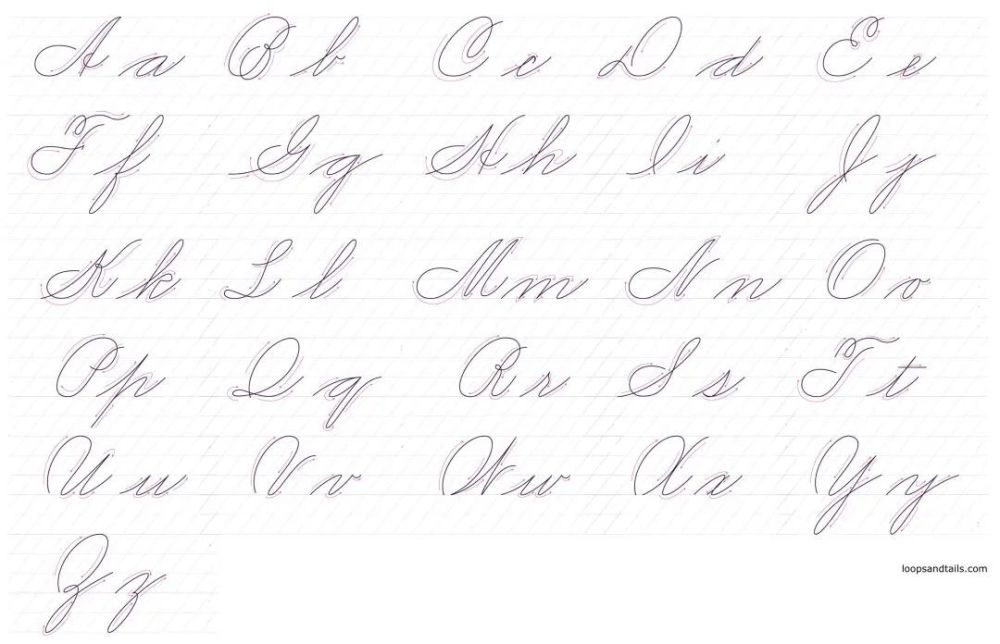 A a B b C c D d E e
F f G g H h I i J j
K k L l M m N n O o
P p Q q R r S s T t
U u V v W w X x Y y
Z z
loopsandtails.com